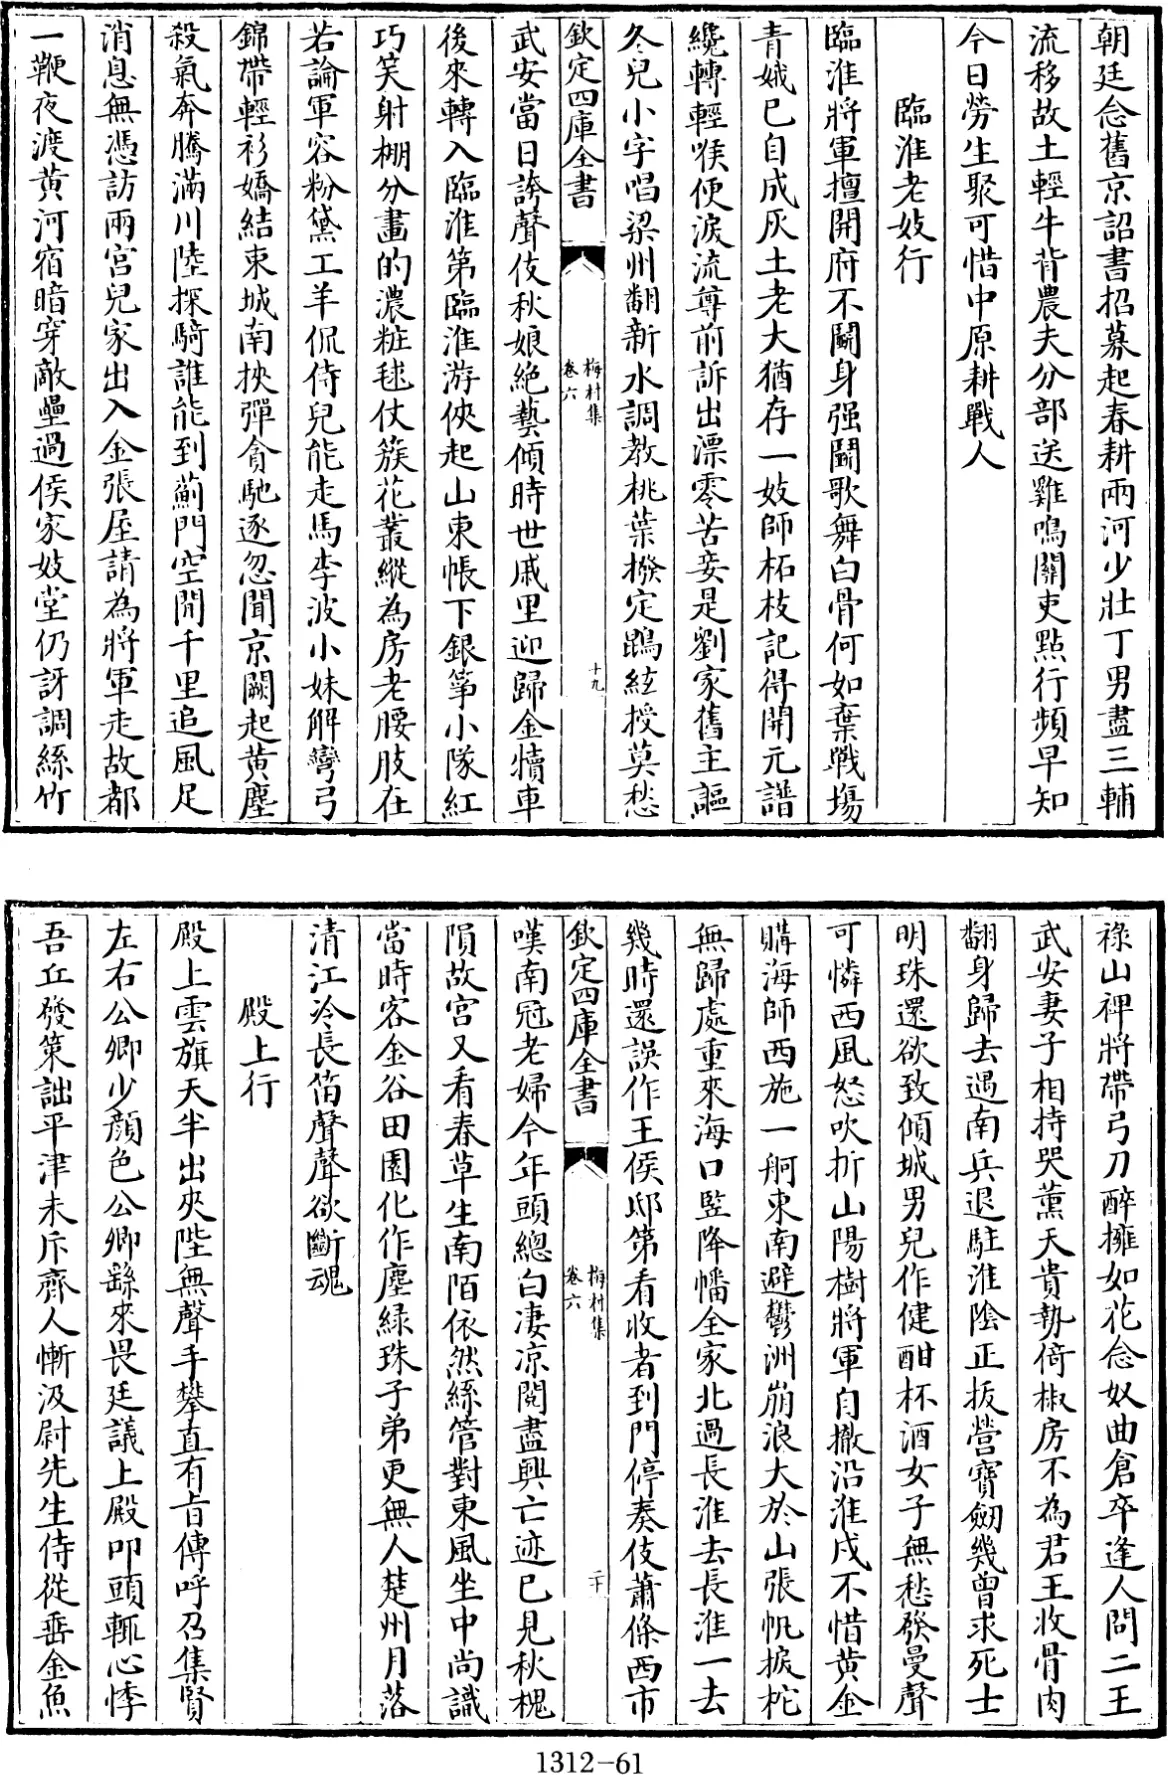 朝廷念舊京詔書招募起春耕兩河少壯丁男盡三輔
流移故土輕牛背農夫分部送雞鳴關吏點行頻早知
今日勞生聚可惜中原耕戰人
臨淮老妓行
臨淮將軍擅開府不鬭身强鬭歌舞白骨何如棄戰塲
青娥已自成灰土老大猶存一妓師柘枝記得開元譜
纔轉輕喉便淚流尊前訴出漂零苦妾是劉家舊主謳
冬兒小字唱梁州翻新水調教桃葉撥定鵾絃授莫愁
欽定四庫全書
梅村集
卷六
十九
武安當日誇聲伎秋娘絶藝傾時世戚里迎歸金犢車
後來轉入臨淮第臨淮游俠起山東帳下銀箏小隊紅
巧笑射棚分畫的濃粧毬仗簇花叢縱為房老腰肢在
若論軍容粉黛工羊侃侍兒能走馬李波小妹解彎弓
錦帶輕衫嬌結束城南挾彈貪馳逐忽聞京闕起黄塵
殺氣奔騰滿川陸探騎誰能到薊門空閒千里追風足
消息無憑訪兩宮兒家出入金張屋請為將軍走故都
一鞭夜渡黄河宿暗穿敵壘過侯家妓堂仍訝調絲竹
祿山裨將帶弓刀醉擁如花念奴曲倉卒逢人問二王
武安妻子相持哭薰天貴勢倚椒房不為君王收骨肉
翻身歸去遇南兵退駐淮陰正拔營寶劒幾曾求死士
明珠還欲致傾城男兒作健酣杯酒女子無愁發曼聲
可憐西風怒吹折山陽樹將軍自撤沿淮戍不惜黄金
購海師西施一舸東南避鬱洲崩浪大於山張帆捩柁
無歸處重來海口竪降幡全家北過長淮去長淮一去
幾時還誤作王侯邸第看收者到門停奏伎蕭條西市
欽定四庫全書
梅村集
卷六
二十
嘆南冠老婦今年頭總白凄凉閱盡興亡迹已見秋槐
隕故宫又看春草生南陌依然絲管對東風坐中尚識
當時客金谷田園化作塵緑珠子弟更無人楚州月落
清江冷長笛聲聲欲斷魂
殿上行
殿上雲旗天半出夾陛無聲手攀直有旨傳呼召集賢
左右公卿少顔色公卿繇來畏廷議上殿叩頭輒心悸
吾丘發策詘平津未斥齊人慚汲尉先生侍從垂金魚
1312-61